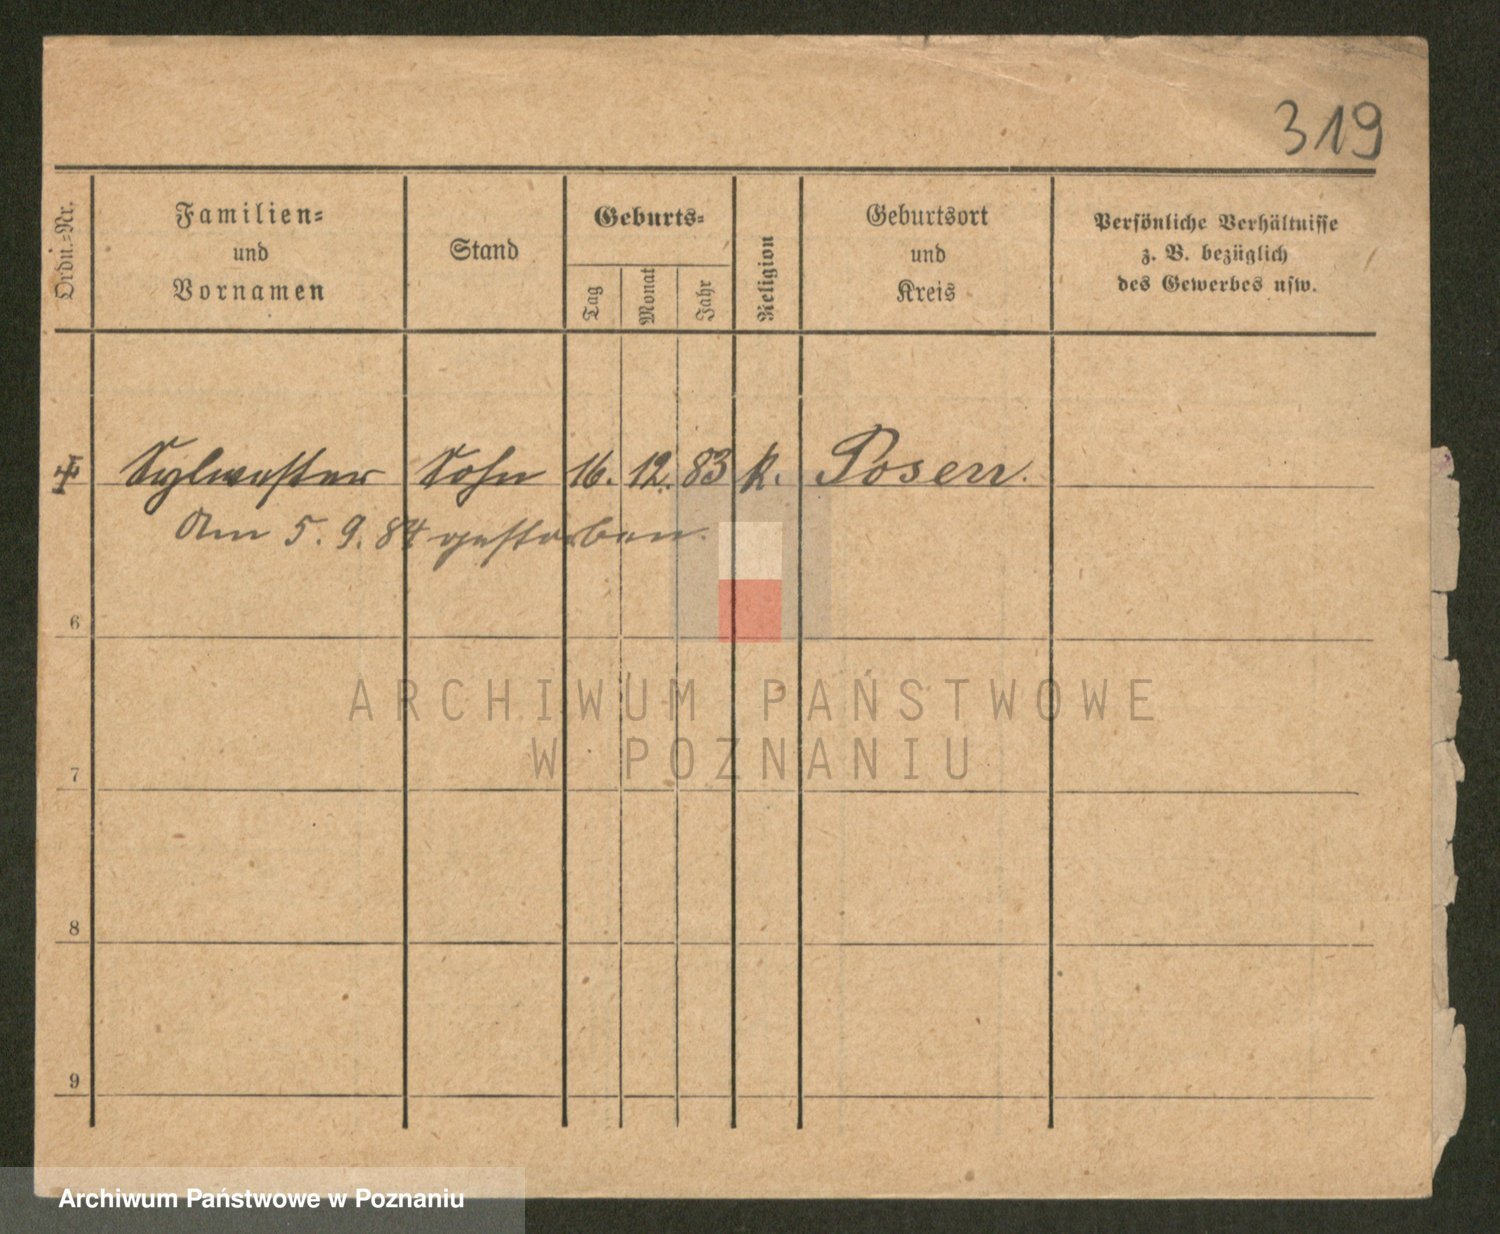 319
Ordn.-Nr.
Familien-
und
Vornamen
Stand
Geburts-
Tag
Monat
Jahr
Religion
Geburtsort
und
Kreis
Persönliche Verhältnisse
z. B. bezüglich
des Gewerbes usw.
Sylwester Sohn 16. 12. 83 k. Posen.
Am 5. 9. 84 gestorben.
6
7
8
9
ARCHIWUM PAŃSTWOWE
W POZNANIU
Archiwum Państwowe w Poznaniu